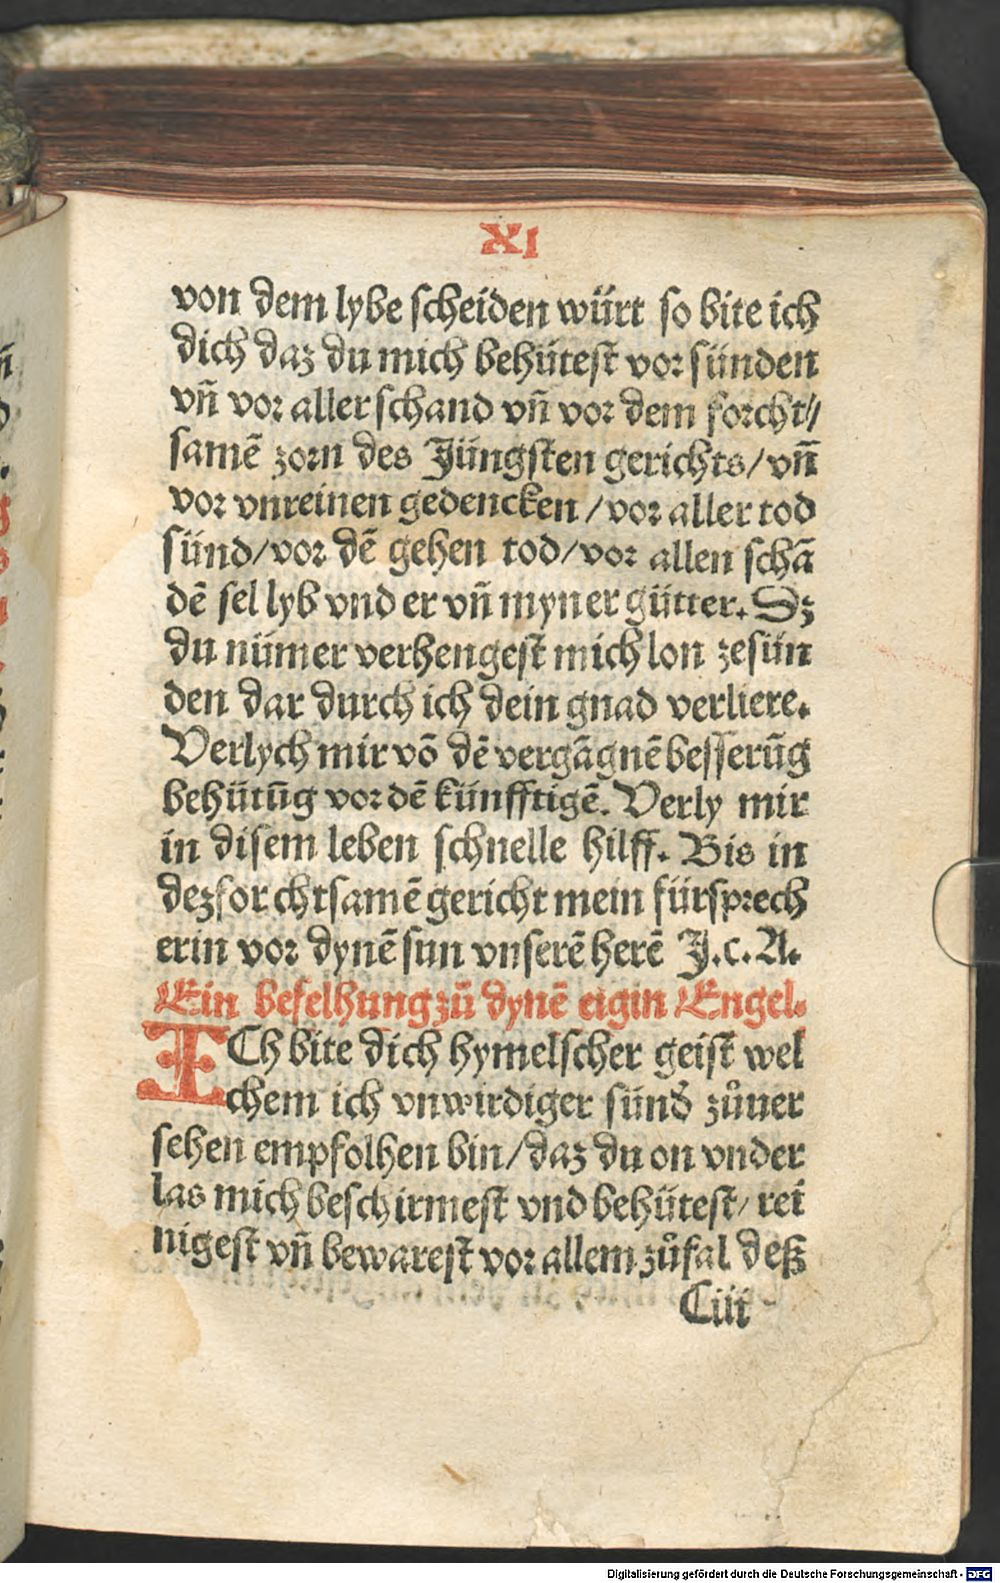 XI
von dem lybe scheiden würt so bite ich
dich daz du mich behütest vor sünden
vñ vor aller schand vñ vor dem forcht//
samē zorn des Jüngsten gerichts/ vñ
vor vnreinen gedencken / vor aller tod
sünd/vor dē gehen tod/vor allen schā
dē sel lyb vnd er vñ myner gütter. Dz
du nümer verhengest mich lon zesün
den dar durch ich dein gnad verliere.
Verlych mir vō dē vergāgnē besserūg
behütūg vor dē künfftigē. Verly mir
in disem leben schnelle hilff. Bis in
dez forchtsamē gericht mein fürsprech
erin vor dynē sun vnserē herē J.c.A.
Ein befelhung zū dynē eigin Engel.
ICh bite dich hymelscher geist wel
chem ich vnwirdiger sünd' zůuer
sehen empfolhen bin/ daz du on vnder
las mich beschirmest vnd behütest/ rei
nigest vñ bewarest vor allem zůfal deß
Ciii
Digitalisierung gefördert durch die Deutsche Forschungsgemeinschaft - DFG